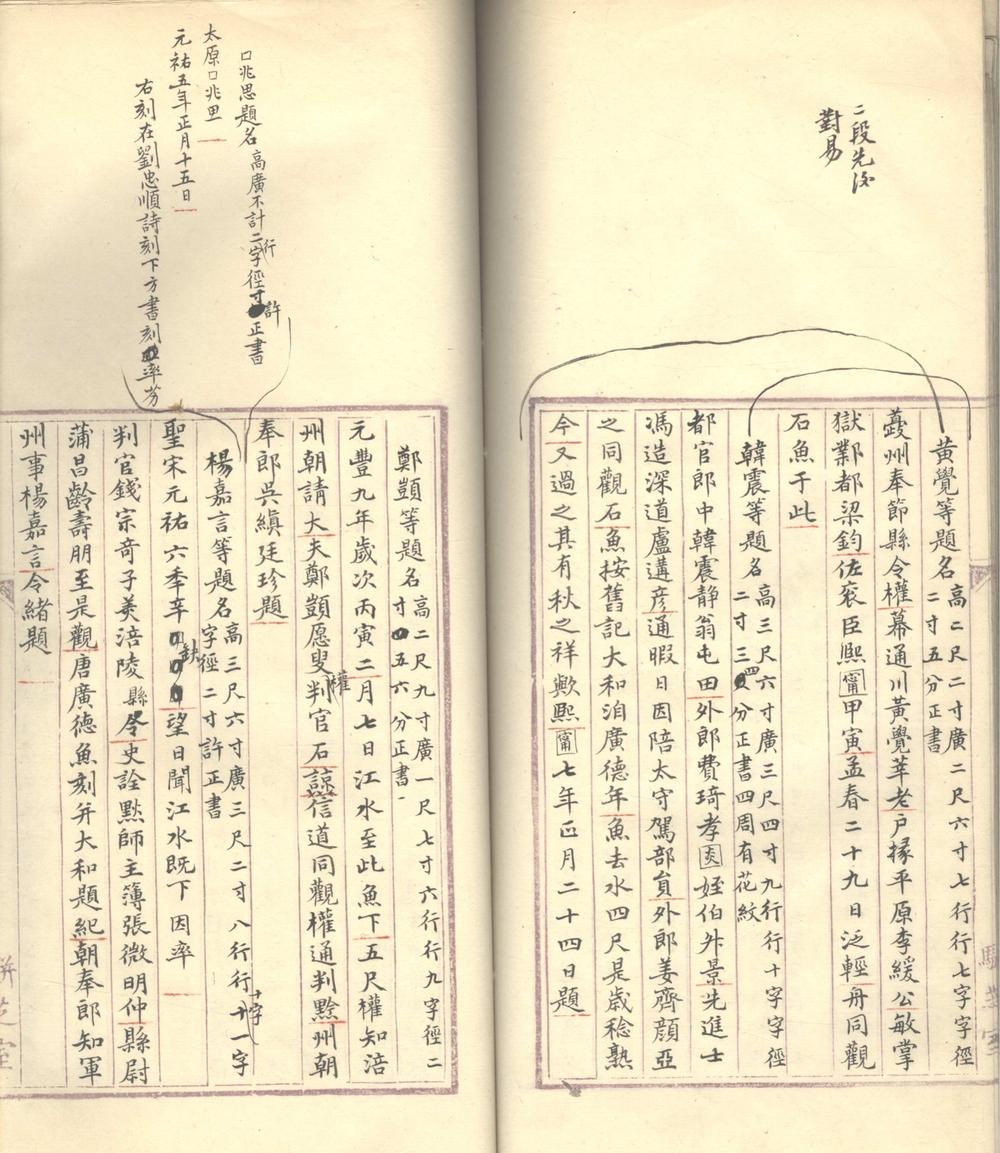 二段先後
對易
黃覺等題名高二尺二寸廣二尺六寸七行行七字字徑二寸五分正書
夔州奉節縣令權幕通川黃覺莘老戶掾平原李緩公敏掌
獄鄴都梁鈞佐袞臣熙甯甲寅孟春二十九日泛輕舟同觀
石魚于此
韓震等題名高三尺六寸廣三尺四寸九行行十字字徑二寸三四分正書四周有花紋
都官郎中韓震静翁屯田外郎費琦孝琰姪伯升景先進士
馮造深道盧遘彥通暇日因陪太守駕部負外郎姜齊顔亞
之同觀石魚按舊記大和洎廣德年魚去水四尺是歲稔熟
今又過之其有秋之祥歟熙甯七年正月二十四日題
口兆思題名高廣不計二行字徑寸許正書
太原口兆思
元祐五年正月十五日
右刻在劉忠順詩刻下方書刻率劣
鄭顗等題名高二尺九寸廣一尺七寸六行行九字徑二寸五六分正書
元豐九年歲次丙寅二月七日江水至此魚下五尺權知涪
州朝請大夫鄭顗愿叟權判官石諒信道同觀權通判黔州朝
奉郎吳縝廷珍題
楊嘉言等題名高三尺六寸廣三尺二寸八行行十字十一字字徑二寸許正書
聖宋元祐六季辛缺望日聞江水既下因率
判官錢宗奇子美涪陵縣令史詮默師主簿張微明仲縣尉
蒲昌齡壽朋至是觀唐廣德魚刻并大和題紀朝奉郎知軍
州事楊嘉言令緒題